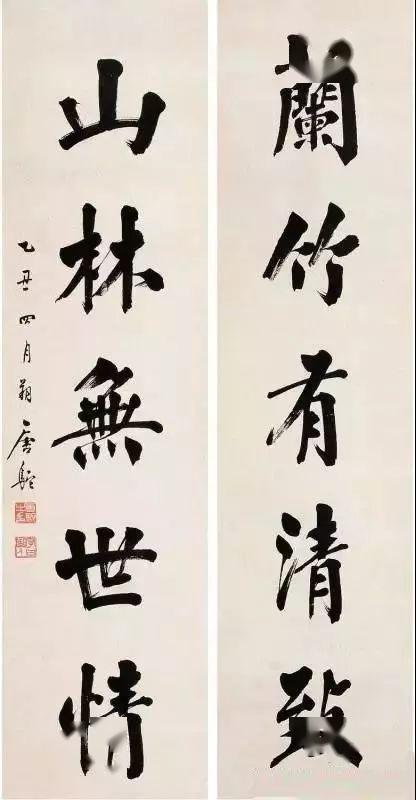 蘭竹有清致
山林無世情
乙丑四月朔唐駝